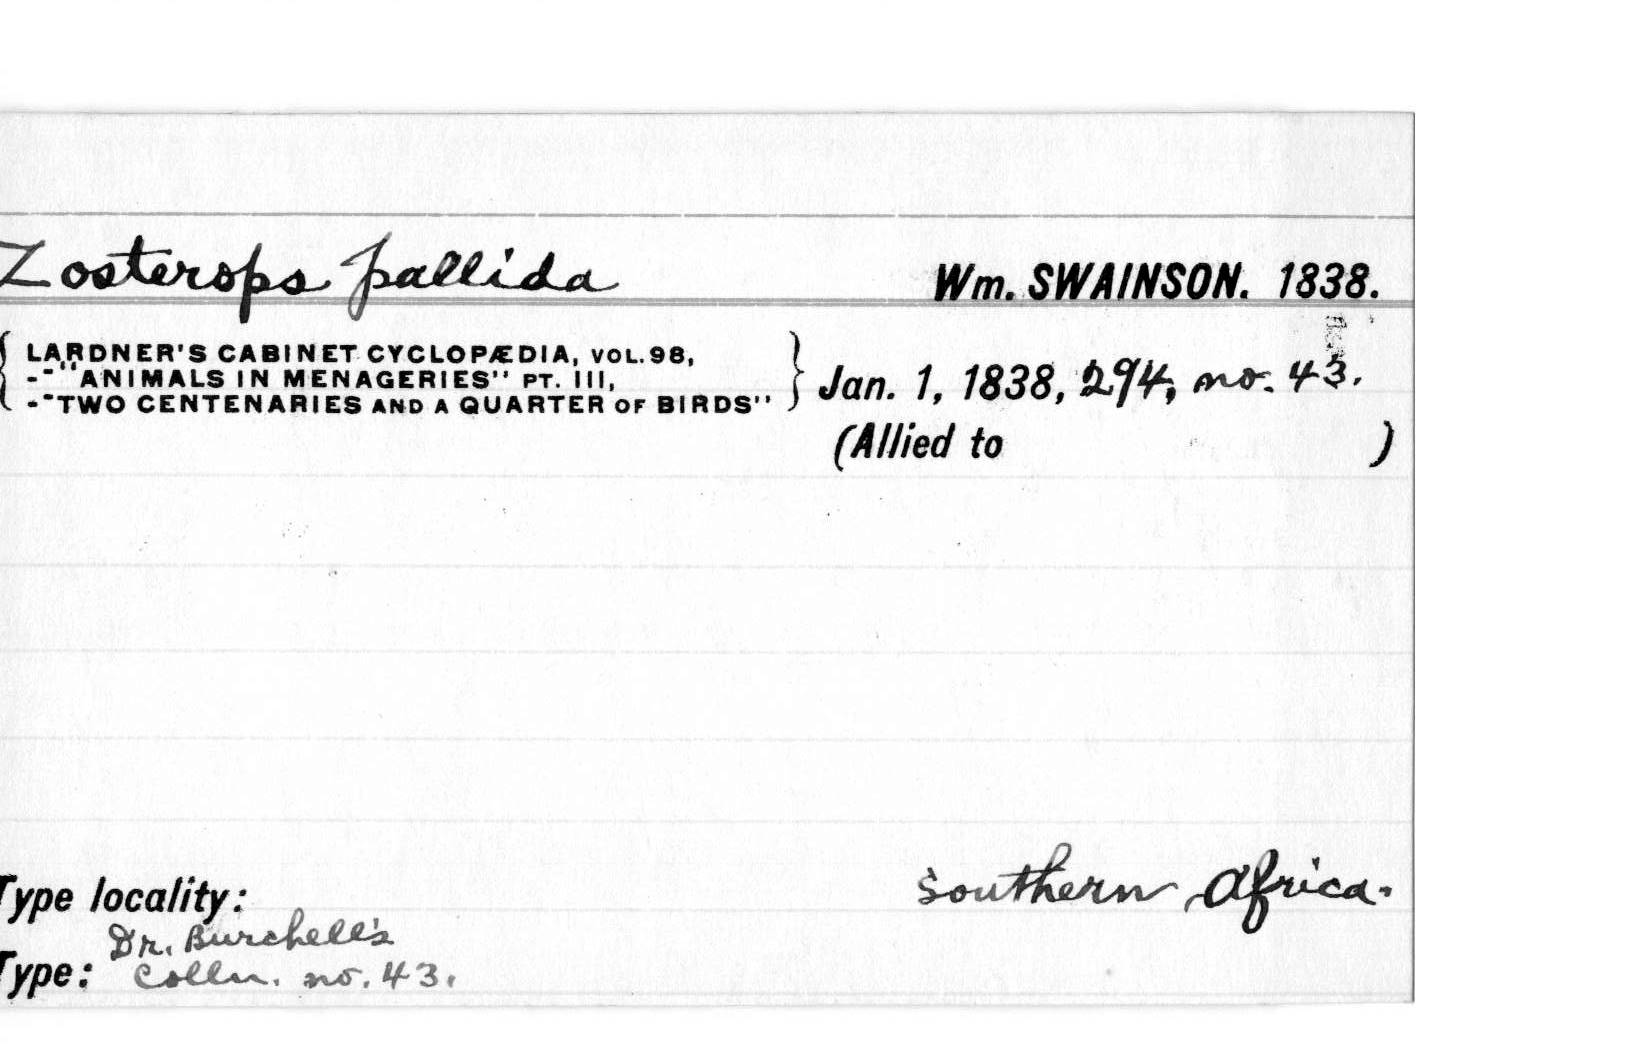 Zosterops pallida Wm. SWAINSON. 1838.
LARDNER'S CABINET CYCLOPÆDIA, VOL.98,
--"ANIMALS IN MENAGERIES" PT. III,
--"TWO CENTENARIES AND A QUARTER OF BIRDS"
Jan. 1, 1838, 294, no. 43.
(Allied to )
Type locality: Southern Africa.
Dr. Burchell's
Type: Colln. no. 43.